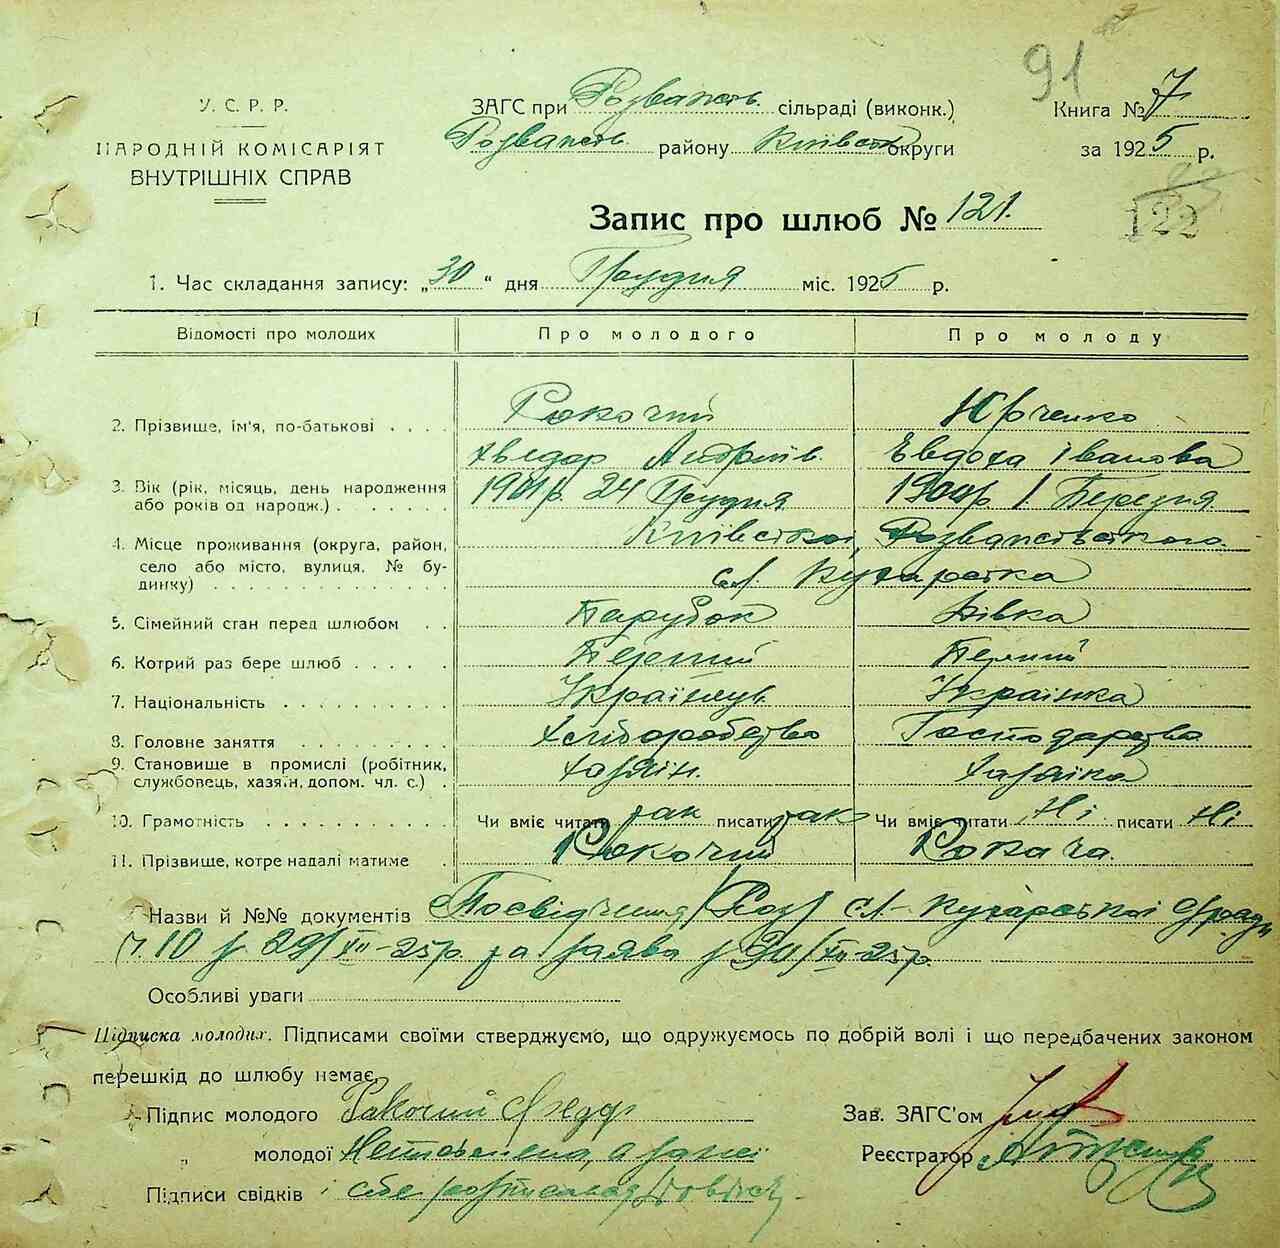 91
У. С. Р. Р.
НАРОДНІЙ КОМІСАРІЯТ
ВНУТРІШНІХ СПРАВ
ЗАГС при Розважсть. сільраді (виконк.)
Розважсть. району Київськ округи
Книга № 7
за 1925 р.
Запис про шлюб № 121.
122
1. Час складання запису: „30“ дня Грудня міс. 1925 р.
Відомості про молодих Про молодого Про молоду
2. Прізвище, ім'я, по-батькові Рокочий Юрченко
Хведар Андріїв. Евдоха Іванова
3. Вік (рік, місяць, день народження або років од народж.) 1901 р. 24 Грудня 1900 р. 1 Березня
4. Місце проживання (округа, район, село або місто, вулиця, № будинку) Київської, Розважівського.
сл. Кухарська
5. Сімейний стан перед шлюбом Парубок Дівка
6. Котрий раз бере шлюб Перший Перший
7. Національність Українець Українка
8. Головне заняття Хліборобство Господарство
9. Становище в промислі (робітник, службовець, хазяїн, допом. чл. с.) Хазяїн. Хазяйка
10. Грамотність Чи вміє читати так писати так Чи вміє читати Ні писати Ні
11. Прізвище, котре надалі матиме Рокочий Рокоча.
Назви й №№ документів Посвідчення сл. Кухарської
ч. 10 з 29/XII-25р. та заява з 30/XII-25р.
Особливі уваги
Підписка молодих. Підписами своїми стверджуємо, що одружуємось по добрій волі і що передбачених законом
перешкід до шлюбу немає.
Підпис молодого Рокочий Федор
Зав. ЗАГС'ом
„ молодої Неписьменна, а за неї
Реєстратор
Підписи свідків і себе розписався